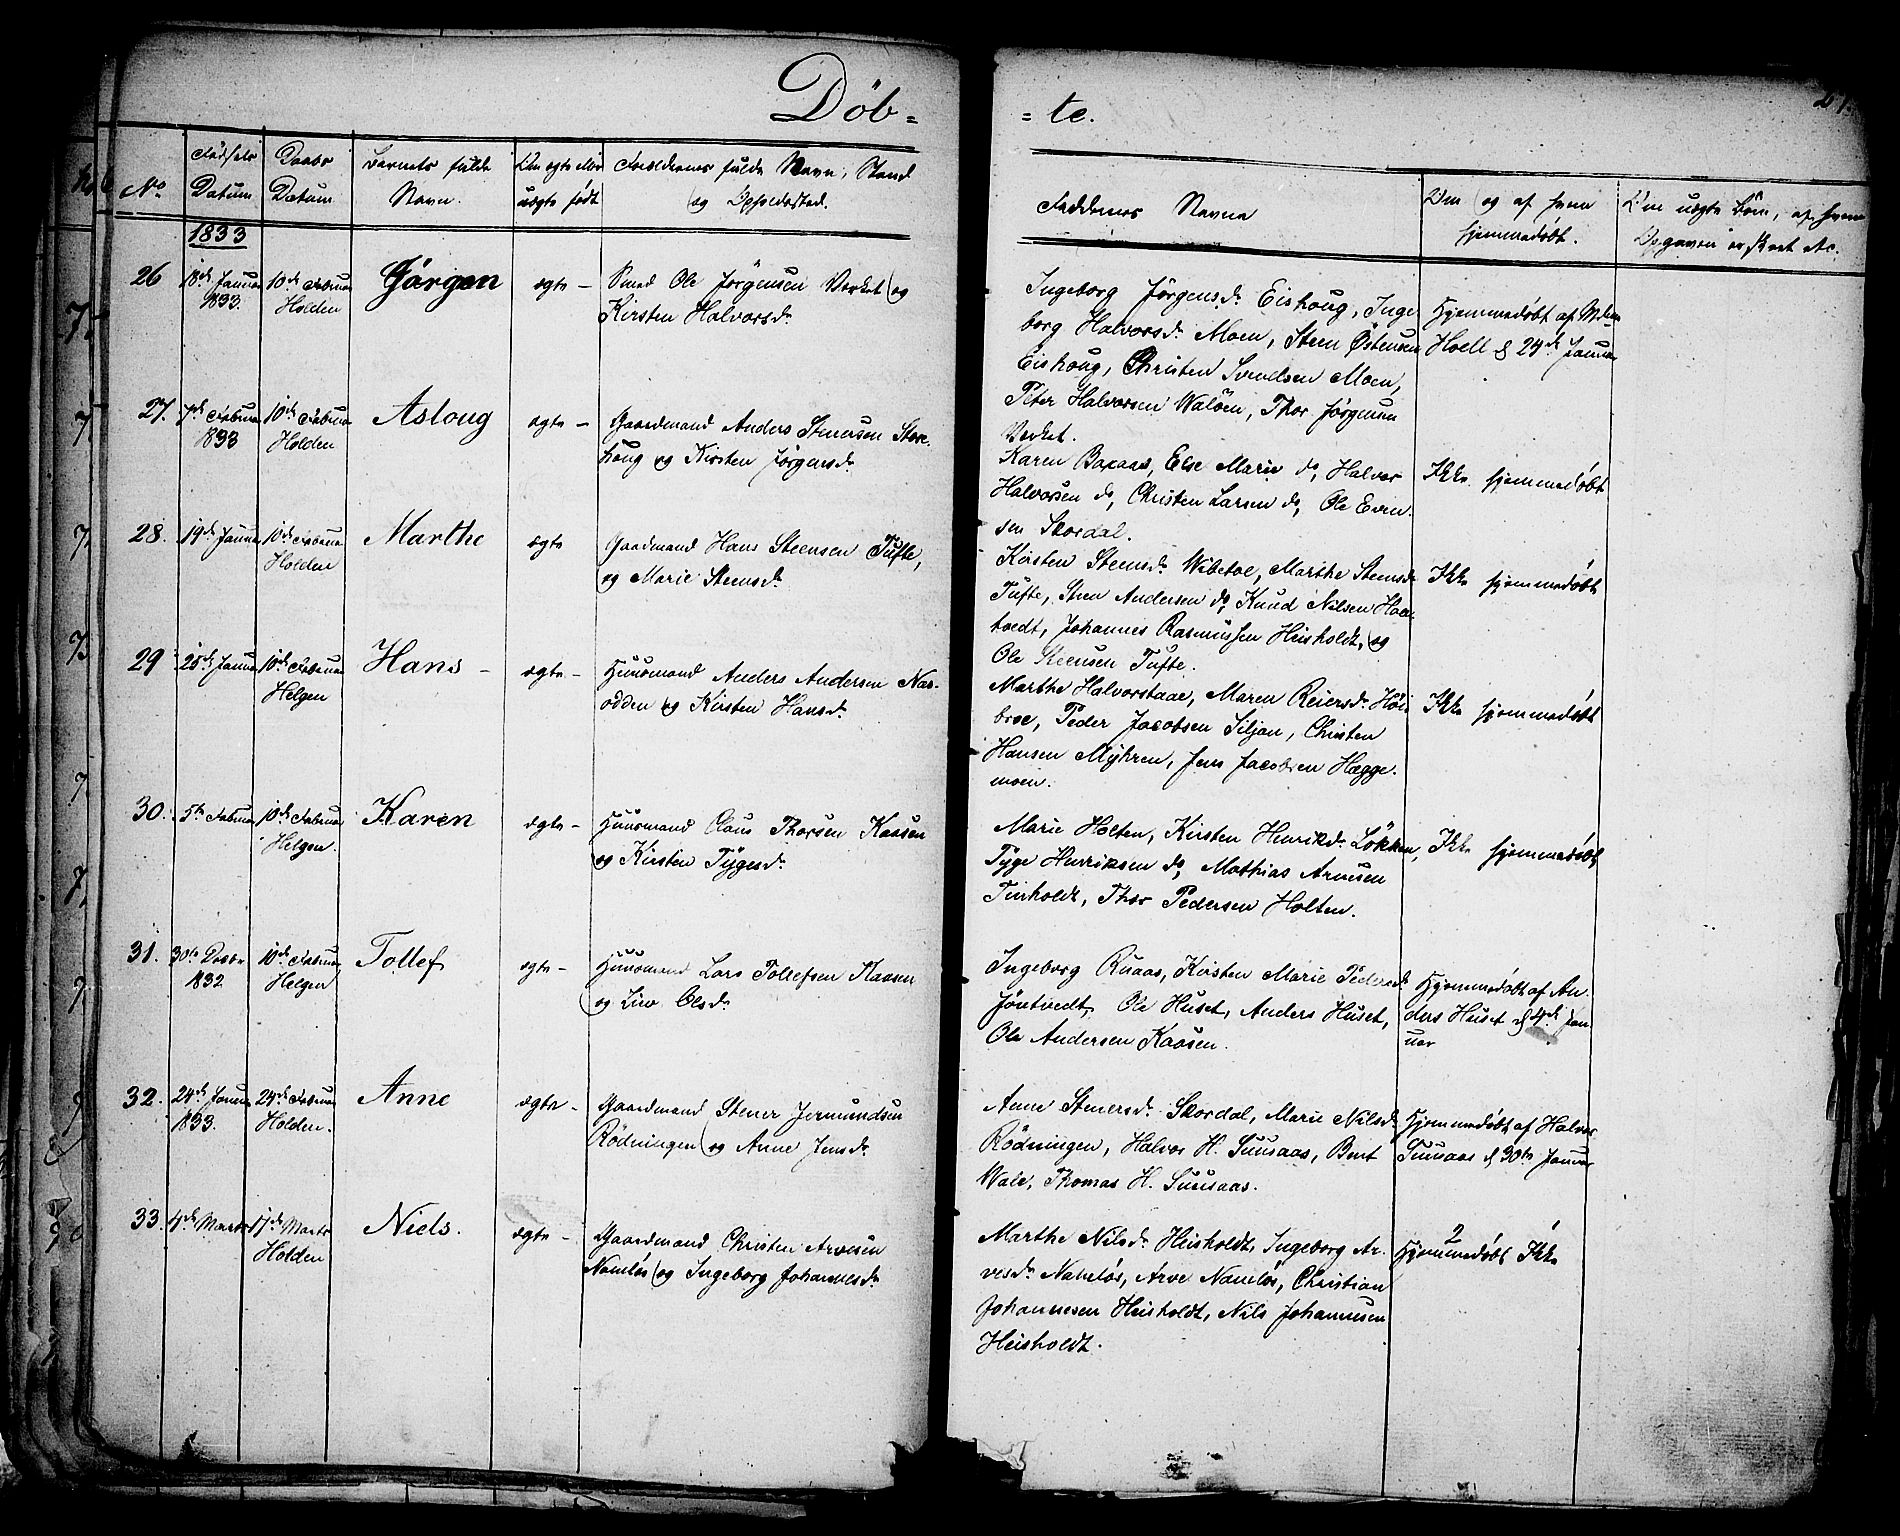 Döb-
Fødsels Daabs Barnets fulde Om ægte eller Forældrenes fulde Navn, Stand
No Datum Datum Navn. uægte født og Opholdssted.
1833
26 18de Januar 10de Februar Jørgen ægte - Smed Ole Jørgensen Verket og
1833. Holden Kirsten Halvorsdr
27. 7de Februar 10de Februar Asloug ægte - Gaardmand Anders Stenersen Store-
1833 Holden houg og Kirsten Jørgensdr
28. 19de Januar 10de Februar Marthe ægte Gaardmand Hans Steensen Tufte,
Holden og Marie Steensdr
29 25de Januar 10de Februar Hans - ægte - Huusmand Anders Andersen Næs-
Helgen odden og Kirsten Hansdr
30. 5te Februar 10de Februar Karen ægte - Huusmand Claus Thorsen Kaasen
Helgen. og Kirsten Tygesdr
31. 30te Decbr 10de Februar Tollef ægte - Huusmand Lars Tollefsen Kaasen
1832 Helgen og Live Olsdr
32. 24de Januar 24de Februar Anne ægte - Gaardmand Stener Jermundsen
1833. Holden. Rödningen og Anne Jensdr
33. 4de Marts 17de Marts Niels. ægte - Gaardmand Christen Arvesen
Holden Namløs og Ingeborg Johannesdr
= te.
Faddernes Navne Om og af hvem Om uægte Børn, af hvem
hjemmedøbt. Opgaven er skeet etc.
Ingeborg Jørgensdr Eishoug, Inge Hjemmedøbt af
borg Halvorsdr Moen, Steen Østensen Hoell d 24de Januar
Eishoug, Christen Svendsen Moen,
Peter Halvorsen Waløen, Thor Jørgensen
Verket.
Karen Baxaas, Else Marie do, Halvor Ikke hjemmedøbt
Halvorsen do, Christen Larsen do, Ole Even
sen Skordal.
Kirsten Steensdr Wibetoe, Marthe Steensdr Ikke hjemmedøbt
Tufte, Steen Andersen do, Knud Nilsen Haa
tvedt, Johannes Rasmussen Heisholdt, og
Ole Steensen Tufte.
Marthe Halvorstaae, Maren Reiersdr Höi Ikke hjemmedøbt
broe, Peder Jacobsen Siljan, Christen
Hansen Myhren, Jens Jacobsen Hægge-
moen.
Marie Holten, Kirsten Henriksdr Løkken, Ikke hjemmedøbt
Tyge Henriksen do, Mathias Arnesen
Tinholdt, Thor Pedersen Holten.
Ingeborg Ruaas, Kirsten Marie Pedersdr Hjemmedøbt af An-
Jöntvedt, Ole Huset, Anders Huset, ders Huset d 4de Jan
Ole Andersen Kaasen. uar
Anne Stenersdr Skordal, Marie Nilsdr Hjemmedøbt af Halvor
Rödningen, Halvor H. Suusaas, Bent Suusaas d 30te Januar
Wale, Thomas H. Suusaas.
Marthe Nilsdr Heisholdt, Ingeborg Ar- Hjemmedøbt 2 Ikke 1
vesdr Namløs, Arve Namløs, Christian
Johannesen Heisholdt, Nils Johannesen
Heisholdt.